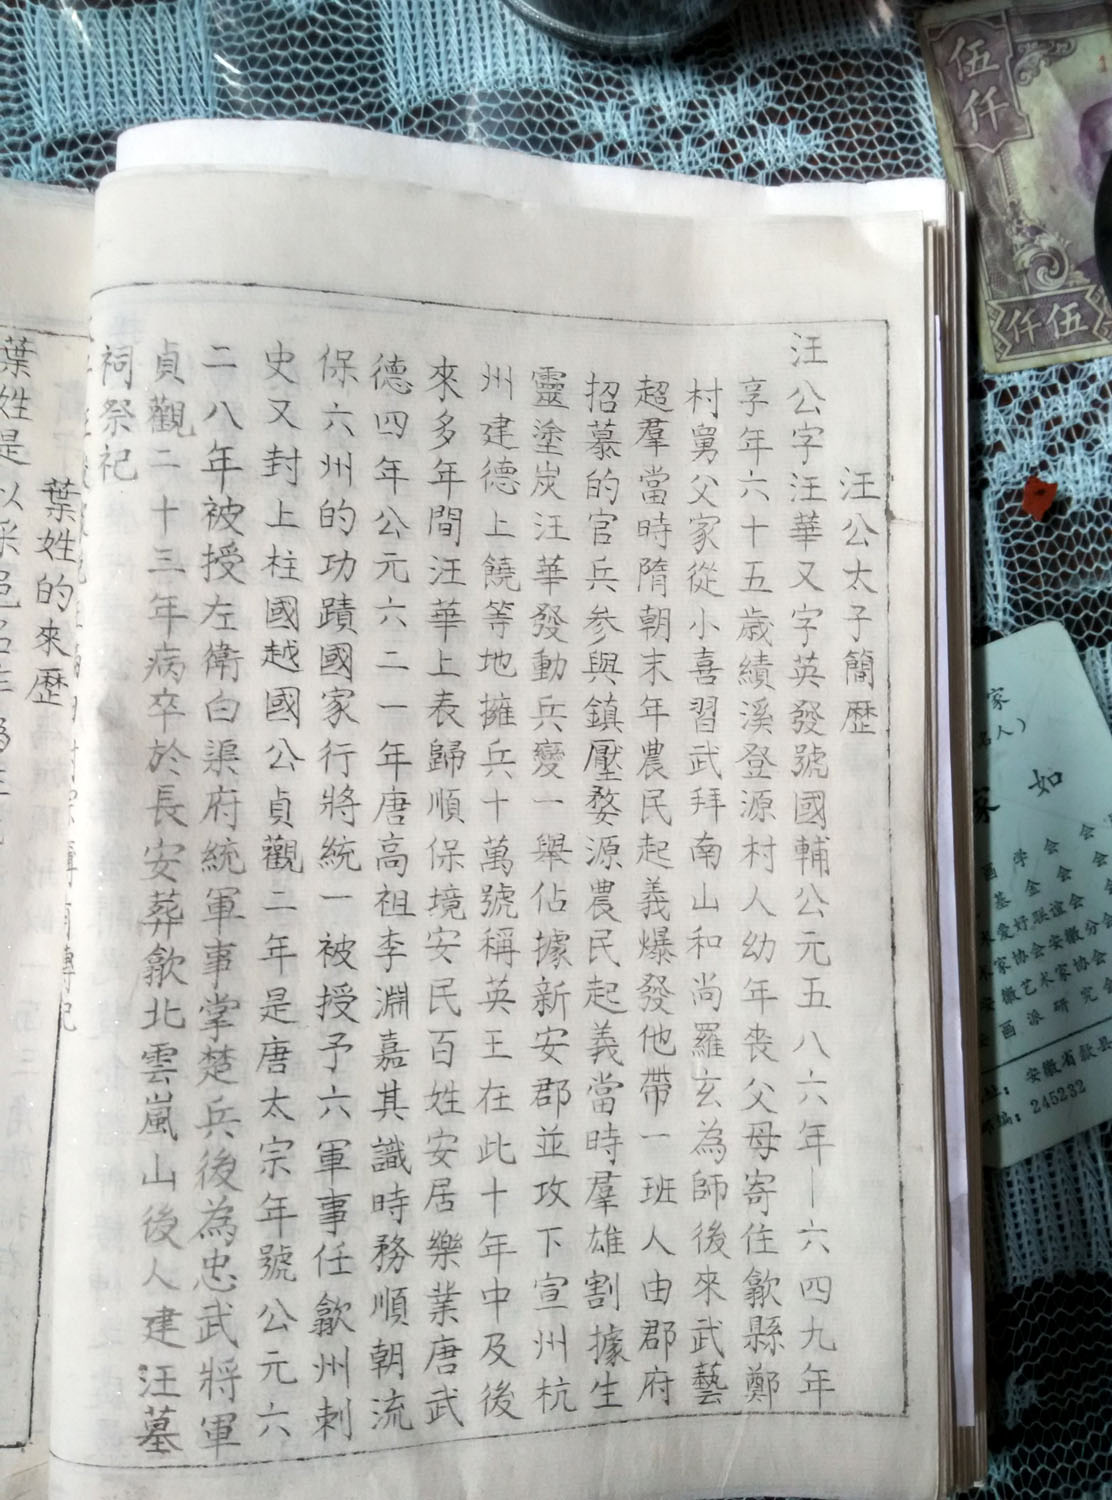 汪公太子簡歷
汪公字汪華又字英發號國輔公元五八六年—六四九年
享年六十五歲績溪登源村人幼年丧父母寄住歙縣鄭
村舅父家從小喜習武拜南山和尚羅玄為師後來武藝
超羣當時隋朝末年農民起義爆發他帶一班人由郡府
招慕的官兵参與鎮壓婺源農民起義當時羣雄割據生
靈塗炭汪華發動兵變一舉佔據新安郡並攻下宣州杭
州建德上饒等地擁兵十萬號稱英王在此十年中及後
來多年間汪華上表歸順保境安民百姓安居樂業唐武
德四年公元六二一年唐高祖李淵嘉其識時務順朝流
保六州的功蹟國家行將統一被授予六軍事任歙州刺
史又封上柱國越國公貞觀二年是唐太宗年號公元六
二八年被授左衛白渠府統軍事掌楚兵後為忠武將軍
貞觀二十三年病卒於長安葬歙北雲嵐山後人建汪墓
祠祭祀
葉姓的來歷
葉姓是以采邑
伍仟
伍仟
家
名人）
家 如
画 学 会 会
基 金 会 会
爱好联谊会
家协会安徽分会
安徽艺术家协会
画派研究会
安徽省歙县
邮编：245232